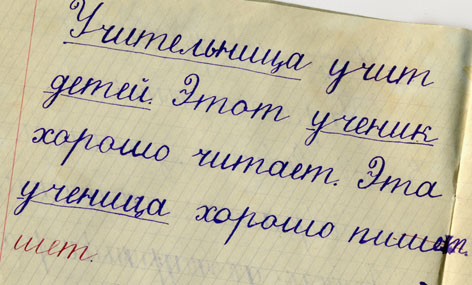 Учительница учит
детей. Этот ученик
хорошо читает. Эта
ученица хорошо пишет.
шет.